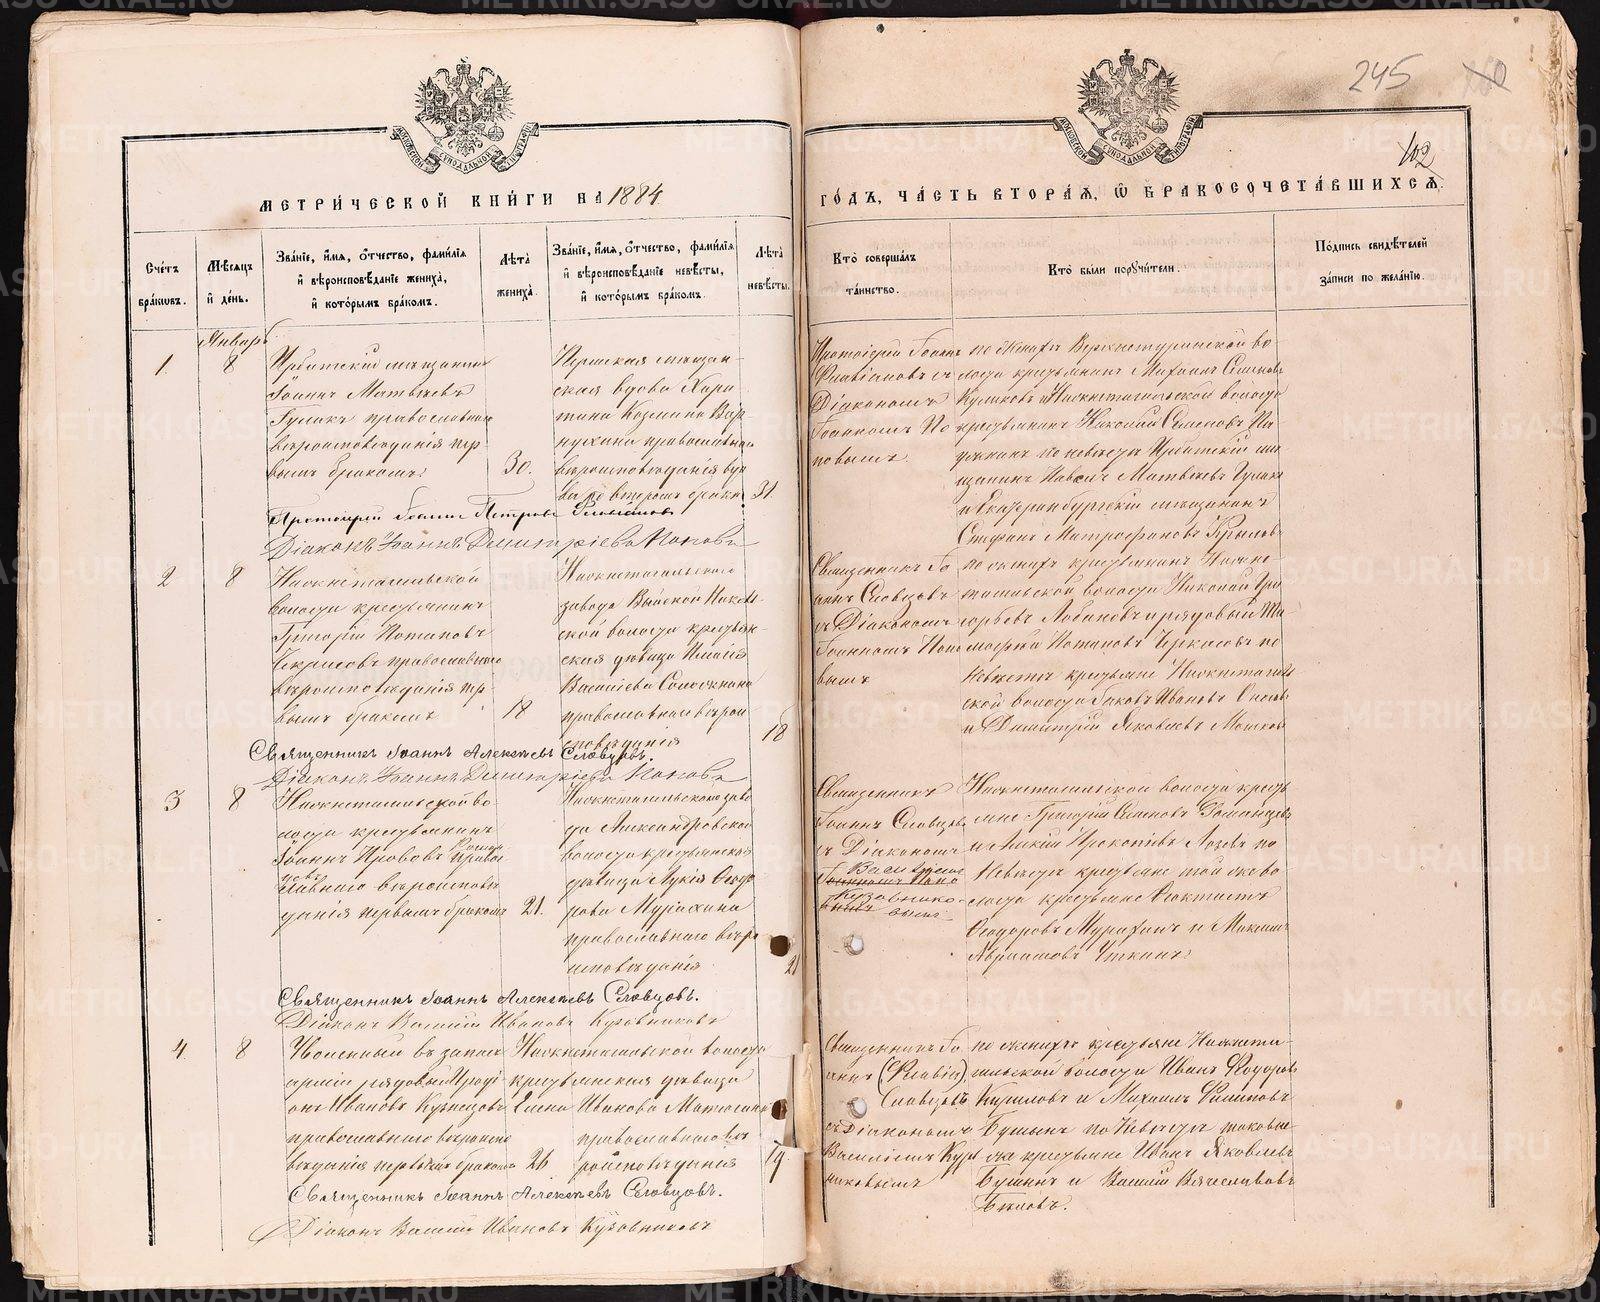 245
102
МОСКОВСКОЙ СѴНОДАЛЬНОЙ ТИПОГРАФІИ
МОСКОВСКОЙ СѴНОДАЛЬНОЙ ТИПОГРАФІИ
МЕТРИ́ЧЕСКОЙ КНИ́ГИ НА 1884
ГО́ДЪ, ЧА́СТЬ ВТОРА́Я, Ѡ БРАКОСОЧЕТА́ВШИХСЯ.
Сче́тъ бра́кѡвъ.
Мѣ́сяцъ и́ де́нь.
Зва́нїе, и́мя, о́тчество, фами́лїя
и́ вѣроисповѣ́данїе жениха̀,
и́ кото́рымъ бра́комъ.
Лѣ́та жениха̀.
Зва́нїе, и́мя, о́тчество, фами́лїя
и́ вѣроисповѣ́данїе невѣ́сты,
и́ кото́рымъ бра́комъ.
Лѣ́та невѣ́сты.
Кто̀ соверша́лъ
та́инство.
Кто̀ бы́ли порꙋчи́тели.
По́дпись свидѣ́телей
за́писи по жела́нїю.
Январь
1.
8
Ирбитскій мѣщанинъ
Іоаннъ Матвѣевъ
Гулакъ православнаго
вѣроисповѣданія пер-
вымъ бракомъ
30.
мѣщан-
ская вдова Хари
тина Козмина
православнаго
вѣроисповѣданія вдо
ва по второмъ бракѣ
31.
Протоіерей Іоаннъ
Флавіановъ съ
Діакономъ
Іоанномъ По
повымъ.
по женихѣ Верхнетуринской во
лости крестьянинъ Михаилъ Семеновъ
Куликовъ и Нижнетагильской волости
крестьянинъ Николай Семеновъ
по невѣстѣ Ирбитскій мѣ
щанинъ Павелъ Матвѣевъ Гулакъ
и Екатеринбургскій мѣщанинъ
Стефанъ Митрофановъ
Протоіерей Іоаннъ Петровъ Флавіановъ
Діаконъ Іоаннъ Димитріевъ Поповъ
2
8
Нижнетагильской
волости крестьянинъ
Григорій Потаповъ
Черкасовъ православнаго
вѣроисповѣданія пер-
вымъ бракомъ
18
Нижнетагильскаго
завода Выйской Николь-
ской волости крестьян-
ская дѣвица
Василіева
православнаго вѣрои-
сповѣданія
18
Священникъ Іо
аннъ Словцовъ
съ Діакономъ
Іоанномъ Попо
вымъ
по женихѣ крестьянинъ Нижне-
тагильской волости Николай Гри
горьевъ Лобановъ и рядовый Ти
мофей Потаповъ Черкасовъ по
невѣстѣ крестьяне Нижнетагиль
ской волости Іаковъ Ивановъ
и Димитрій Яковлевъ
Священникъ Іоаннъ Алексѣевъ Словцовъ.
Діаконъ Іоаннъ Димитріевъ Поповъ
3
8
Нижнетагильской во-
лости крестьянинъ
Іоаннъ Прововъ
православнаго вѣроисповѣ
данія первымъ бракомъ
21.
Нижнетагильскаго заво
да Александровской
волости крестьянская
дѣвица Лукія Ѳеодо
рова Мурахина
православнаго вѣро
исповѣданія
21
Священникъ
Іоаннъ Словцовъ
съ Діакономъ
Василіемъ
Кузовнико-
вымъ
Нижнетагильской волости кресть
яне Григорій Семеновъ
и Прокопіевъ по
невѣстѣ крестьяне той же во
лости крестьяне Ѳеоктистъ
Ѳеодоровъ Мурахинъ и Максимъ
Абрамовъ Уткинъ
Священникъ Іоаннъ Алексѣевъ Словцовъ.
Діаконъ Василій Ивановъ Кузовниковъ
4.
8
Уволенный въ запасъ
арміи рядовый Проді-
онъ Ивановъ Кузнецовъ
православнаго вѣроиспо
вѣданія первымъ бракомъ
26
Нижнетагильской волости
крестьянская дѣвица
Елена Иванова
православнаго вѣ
роисповѣданія
19.
Священникъ Іо
аннъ (Флавіа)
Словцовъ
съ Діакономъ
Василіемъ Кузов
никовымъ
по женихѣ крестьяне Нижнета-
гильской волости Иванъ Ѳедоровъ
Кириловъ и Михаилъ Филиповъ
по невѣстѣ таковые
же крестьяне Иванъ Яковлевъ
и Василій Вячеславовъ
Бѣловъ.
Священникъ Іоаннъ Алексѣевъ Словцовъ.
Діаконъ Василій Ивановъ Кузовниковъ
METRIKI.GASO-URAL.RU